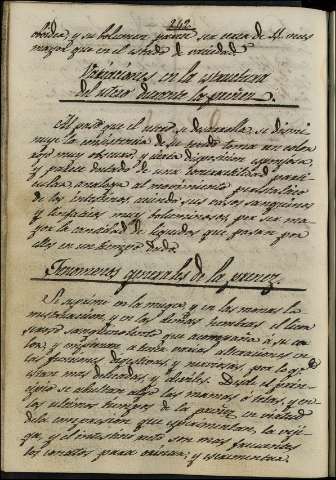 242.
obvidea, y su volumen parece ser cerca de 11 veces
mayor que en el estado de vacuidad.
Variaciones en la estructura
del utero durante la preñez.
Al paso que el utero se desarrolla, se dismi-
nuye la consistencia de su tejido, toma un color
rojo muy obscuro, y cierta disposicion esponjosa,
y parece dotado de una contractilidad parti-
cular, analoga al movimiento peristaltico
de los intestinos, siendo sus vasos sanguineos
y linfaticos muy voluminosos, por su ma-
yor la cantidad de liquidos que pasan por
ellos en un tiempo dado.
Fenomenos generales de la preñez.
Se suprime en la muger, y en las monas la
menstruacion, y en las demas hembras el
flujo sanguinolento que acompaña a su ca-
lor; y experimentan varias alteraciones en
las funciones digestivas, y nerviosas, por lo qe.
estan mas delicadas, y debiles. Desde el prin-
cipio se abultan algo las mamas o tetas, y en
los ultimos tiempos de la preñez, en virtud
de la compresion que experimentan, la veji-
ga, y el intestino recto son mas frecuentes
los conatos para orinar, y excrementar.